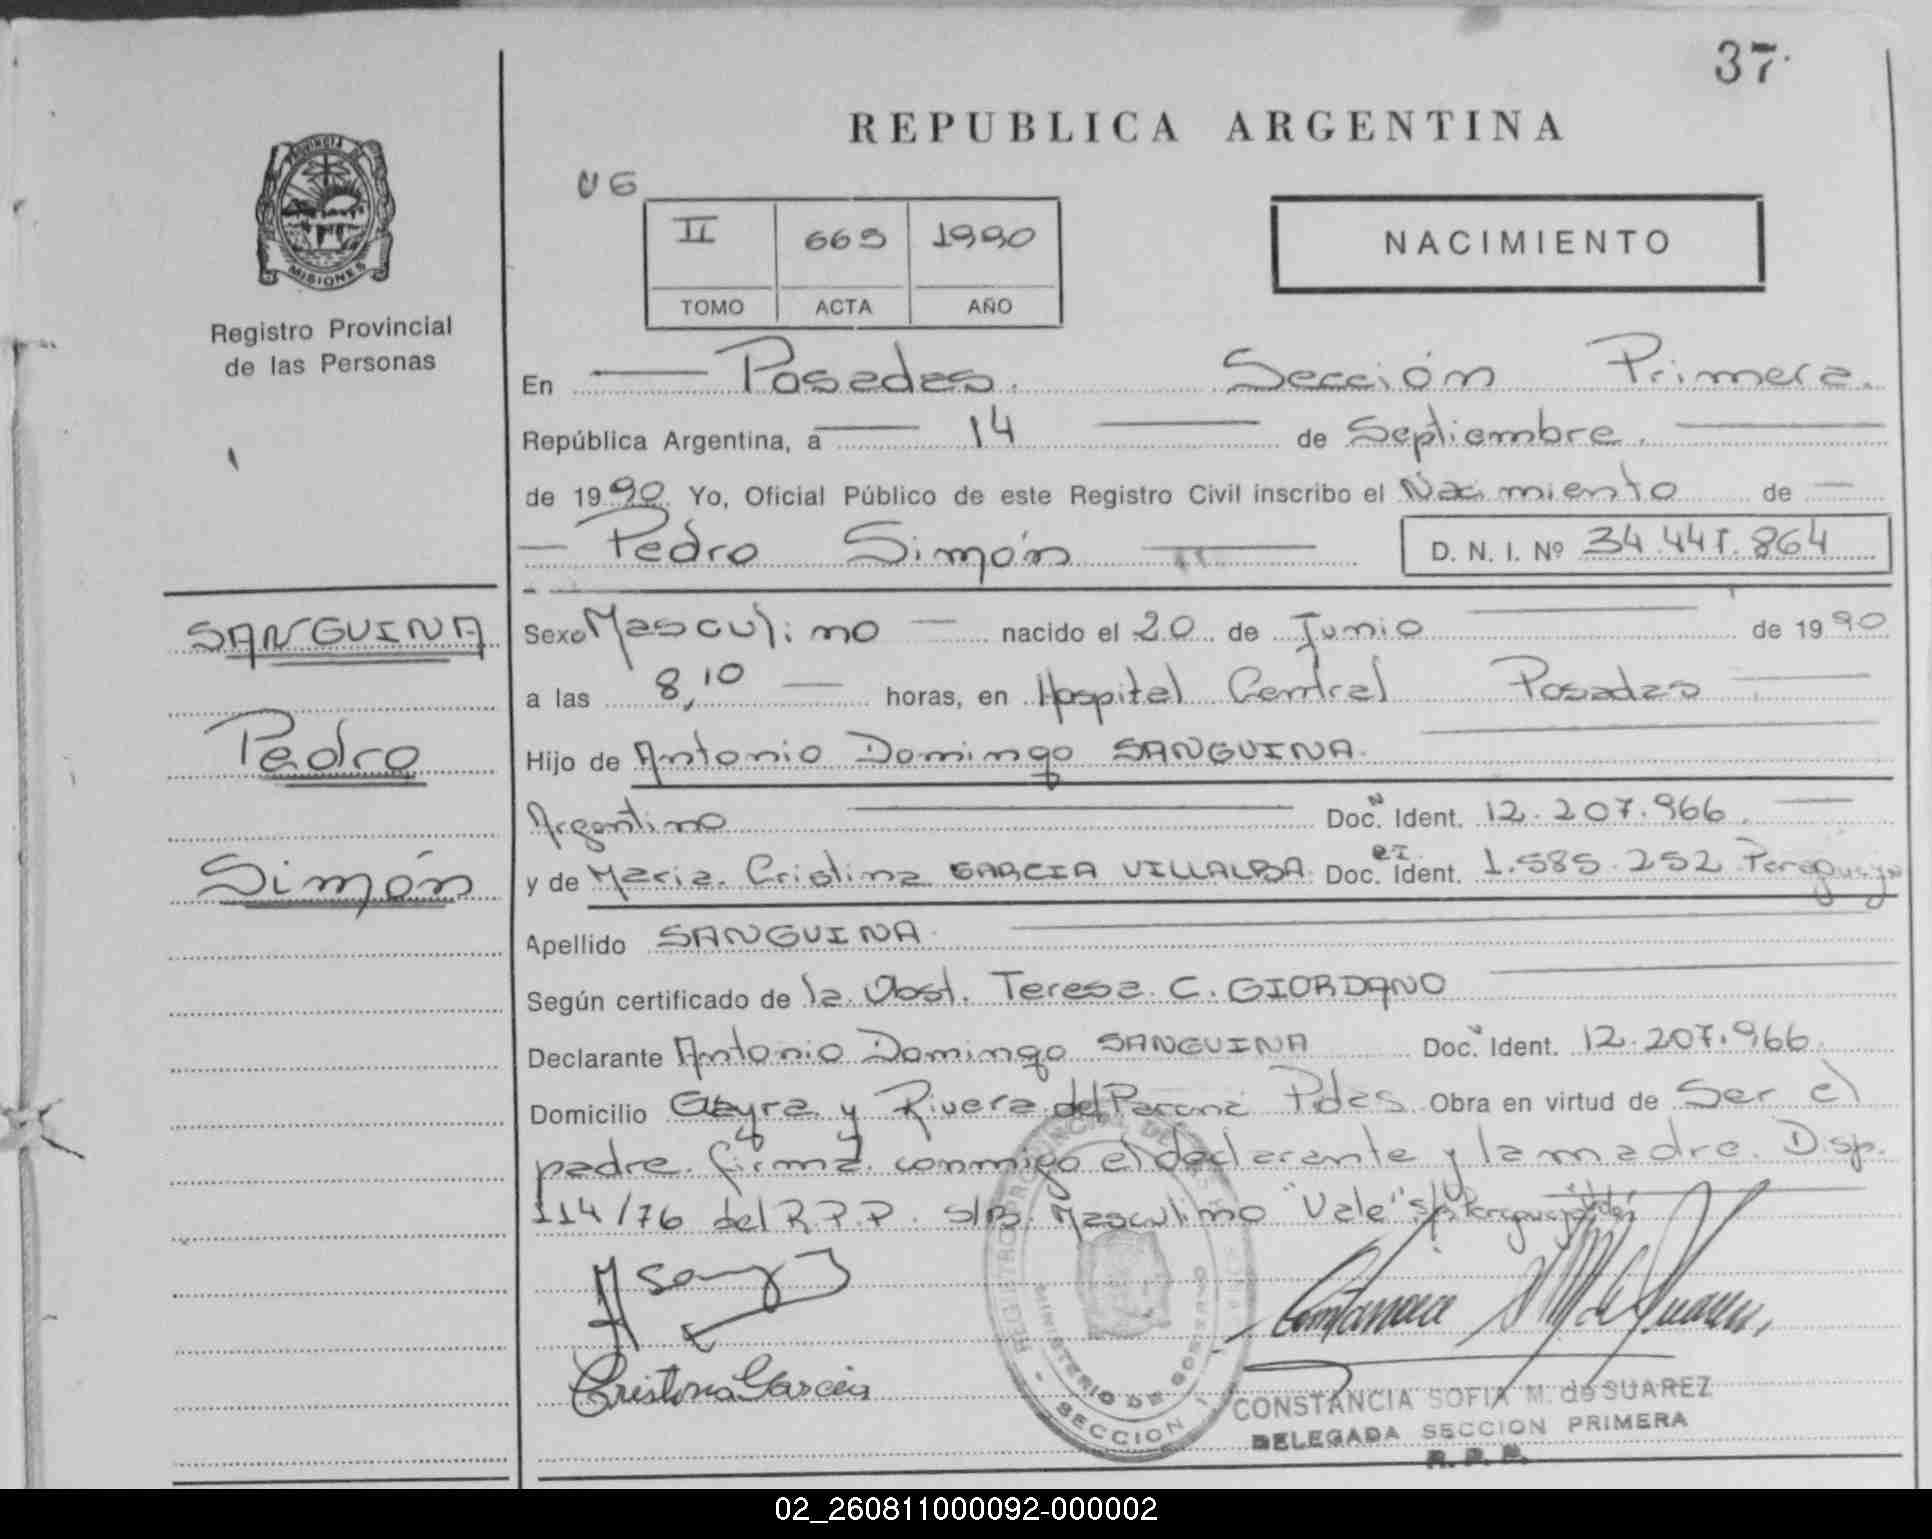 37.
REPUBLICA ARGENTINA
PROVINCIA DE
MISIONES
Registro Provincial
de las Personas
II 669 1990
TOMO ACTA AÑO
NACIMIENTO
En Posadas. Sección Primera.
República Argentina, a 14 de Septiembre.
de 1990. Yo, Oficial Público de este Registro Civil inscribo el Nacimiento de
Pedro Simón
D. N. I. Nº 34.441.864
SANGUINA
Pedro
Simón
Sexo Masculino nacido el 20 de Junio de 1990
a las 8,10 horas, en Hospital Central Posadas
Hijo de Antonio Domingo SANGUINA.
Argentino Doc. N Ident. 12.207.966.
y de Maria Cristina GARCIA VILLALBA Doc. eI. Ident. 1.585.252 Paraguaya
Apellido SANGUINA.
Según certificado de la Obst. Teresa C. GIORDANO
Declarante Antonio Domingo SANGUINA Doc. N Ident. 12.207.966.
Domicilio y Rivera del Paraná Pdas. Obra en virtud de Ser el
padre. firma conmigo el declarante y la madre. Disp.
114/76 del R.P.P. S/B. Masculino "Vale"
Cristina Garcia
REGISTRO PROVINCIAL DE LAS PERSONAS
MINISTERIO DE GOBIERNO
SECCION 1
CONSTANCIA SOFIA M. de SUAREZ
DELEGADA SECCION PRIMERA
R. P. P.
02_260811000092-000002